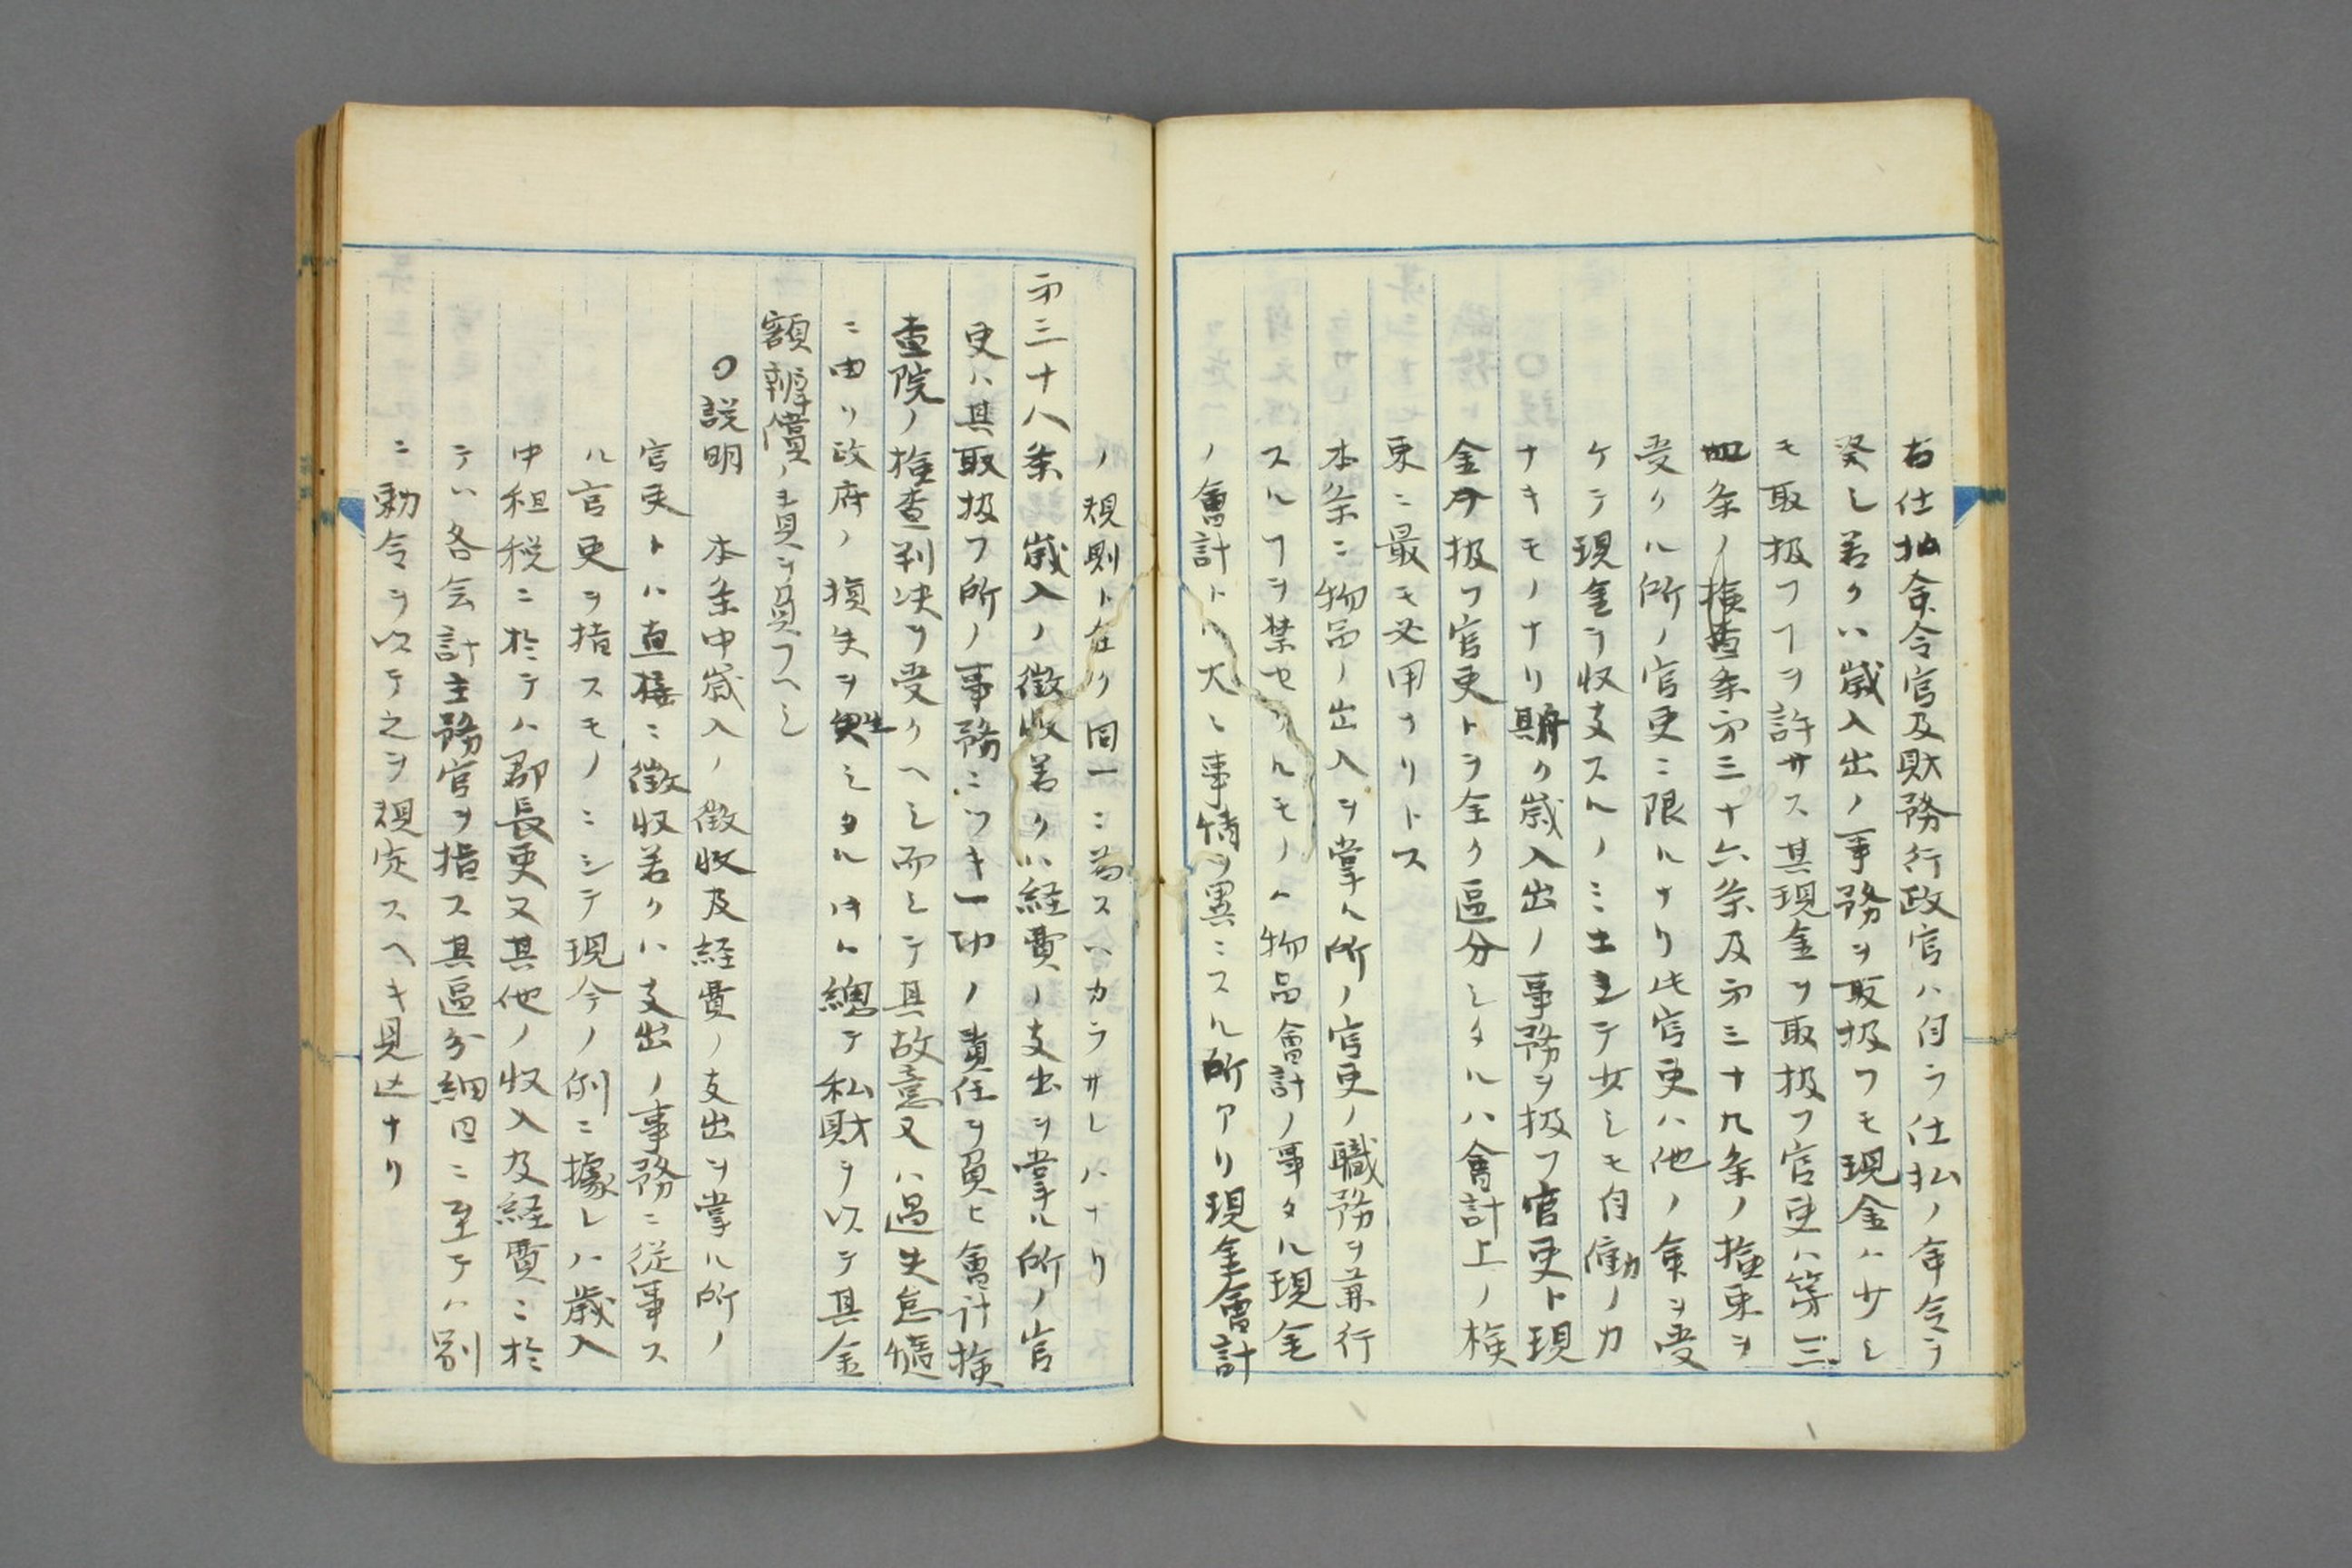 右仕払命令官及財務行政官ハ自ラ仕払ノ命令ヲ
発シ若クハ歳入出ノ事務ヲ取扱フモ現金ハ少シ
モ取扱フヿヲ許サス其現金ヲ取扱フ官吏ハ第三
条ノ検査条第三十六条及第三十九条ノ検束ヲ
受クル所ノ官吏ニ限ルナリ此官吏ハ他ノ命ヲ受
ケテ現金ヲ収支スルノミニテ少シモ自働ノ力
ナキモノナリ歳入出ノ事務ヲ扱フ官吏ト現
金ヲ扱フ官吏トヲ全ク区分シタルハ會計上ノ検
束ニ最モ必用ナリトス
本条ニ物品ノ出入ヲ掌ル所ノ官吏ノ職務ヲ兼行
スルヿヲ禁セサルモノハ物品會計ノ事タル現金
ノ會計トハ大ニ事情ヲ異ニスル所アリ現金會計
ノ規則ト在ク同一ニ為スヘカラサレハナリ
第三十八条 歳入ノ徴収若クハ経費ノ支出ヲ掌ル所ノ官
吏ハ其取扱フ所ノ事務ニツキ一切ノ責任ヲ負ヒ會計検
査院ノ検査判決ヲ受クヘシ而シテ其故意又ハ過失怠惰
ニ由リ政府ノ損失ヲ生シタルハ総テ私財ヲ以テ其金
額辨償ノ責ヲ負フヘシ
〇説明 本条中歳入ノ徴収及経費ノ支出ヲ掌ル所ノ
官吏トハ直接ニ徴収若クハ支出ノ事務ニ従事ス
ル官吏ヲ指スモノニシテ現今ノ例ニ據レハ歳入
中租税ニ於テハ郡長吏又其他ノ収入及経費ニ於
テハ各会計主務官ヲ指ス其區分細目ニ至テハ別
ニ勅令ヲ以テ之ヲ規定スヘキ見込ナリ